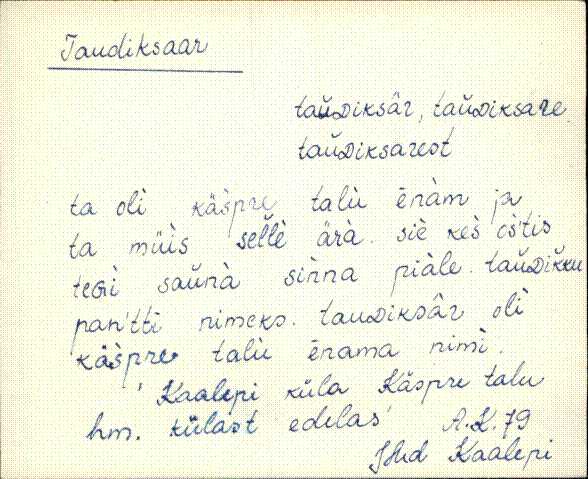 Taudiksaar
tau̬ᴅiksâr, tau̬ᴅiksare
tau̬ᴅiksarest
ta olì käšpre talù ēnàm ja
ta müìs sellè ärà. siè kes òštis
teGì sau̬nà sìnna piàle. tau̬ᴅikku
pan'tti nimeks. tauᴅiksâr olì
käšpre talù ēnama nimì.
' Kaalepi küla Käspre talu
hm. külast edelas' A.K. 79
JMd Kaalepi